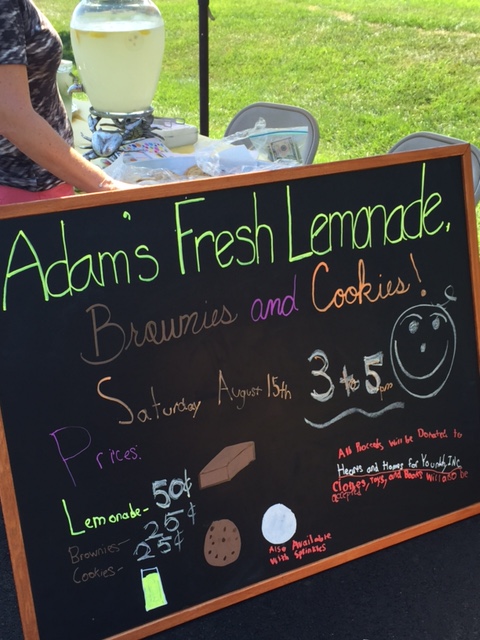 Adam's Fresh Lemonade,
Brownies and Cookies!
Saturday August 15th 3 to 5 pm
Prices:
Lemonade- 50¢
Brownies- 25¢
Cookies- 25¢
Also Available
with Sprinkles
All Proceeds will be Donated to
Hearts and Homes for Youth, INC.
Clothes, Toys, and Books will also be
accepted